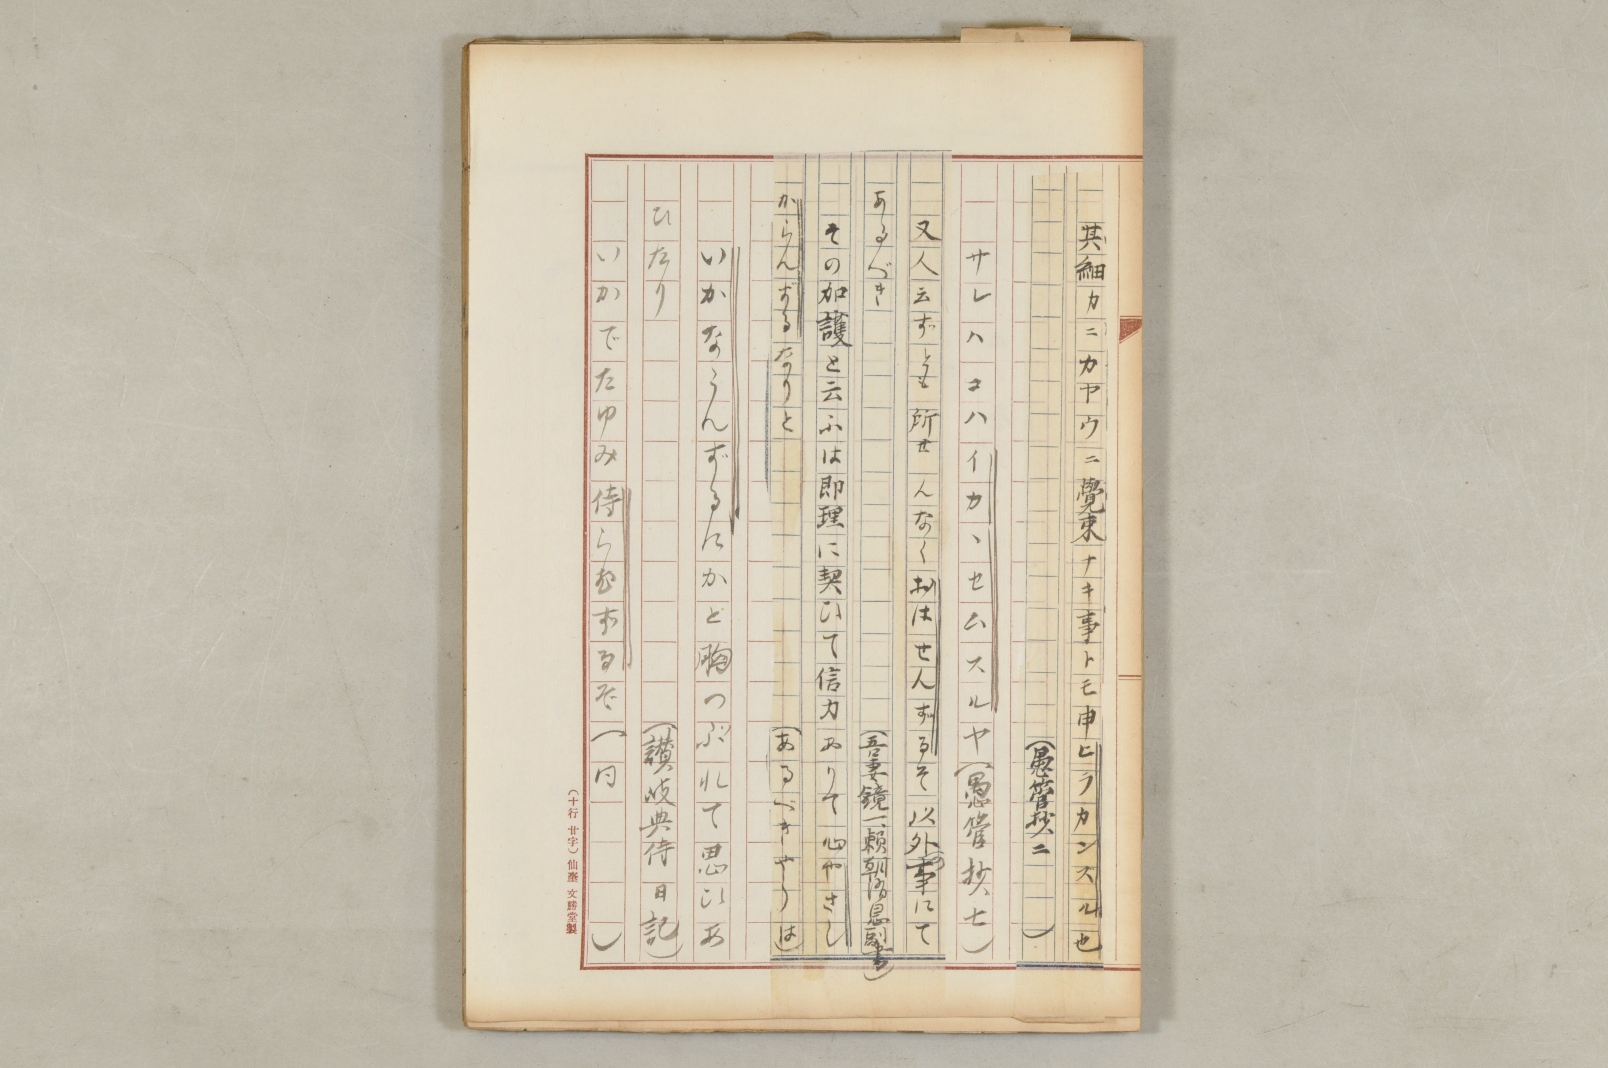 其細カニカヤウニ覺束ナキ事トモ申ヒラカンズル也
(愚管抄二)
サレハコハイカヽセムスルヤ(愚管抄七)
又人云ずとも所せんなくおはせんずるそ以外事にて
あるべき
(吾妻鏡一、頼朝消息副書)
その加護と云ふは即理に契ひて信力ありて心やさし
からんずるなりと
(あるべきやうは)
いかならんずるにかと胸つぶれて思ひあ
ひたり
(讃岐典侍日記)
いかでたゆみ侍らむずるぞ(〃同)
(十行 廿字) 仙臺 文勝堂製